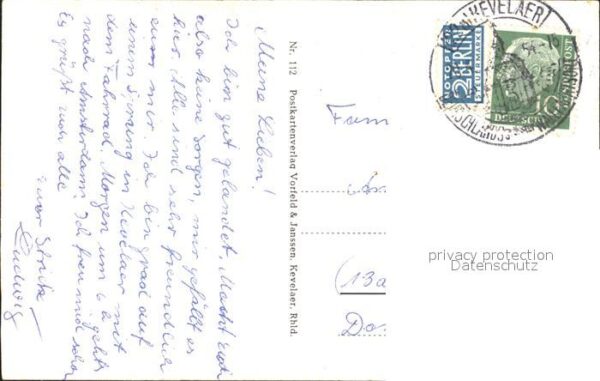 Meine Lieben!
Ich bin gut gelandet, Macht euch
also keine Sorgen, mir gefällt es
hier. Alle sind sehr freundlich
zu mir. Ich bin grad auf
einem Sprung in Kevelaer mit
dem Fahrrad. Morgen um 6 h geht's
nach Amsterdam. Ich freu mich schon
Es grüßt euch alle
euer
Ludwig
Nr. 112 Postkartenverlag Vorfeld & Janssen, Kevelaer, Rhld.
Fam
(13a
Do
KEVELAER
NOTOPFER
2 BERLIN
STEUERMARKE
DEUTSCHE BUNDESPOST
10
privacy protection
Datenschutz